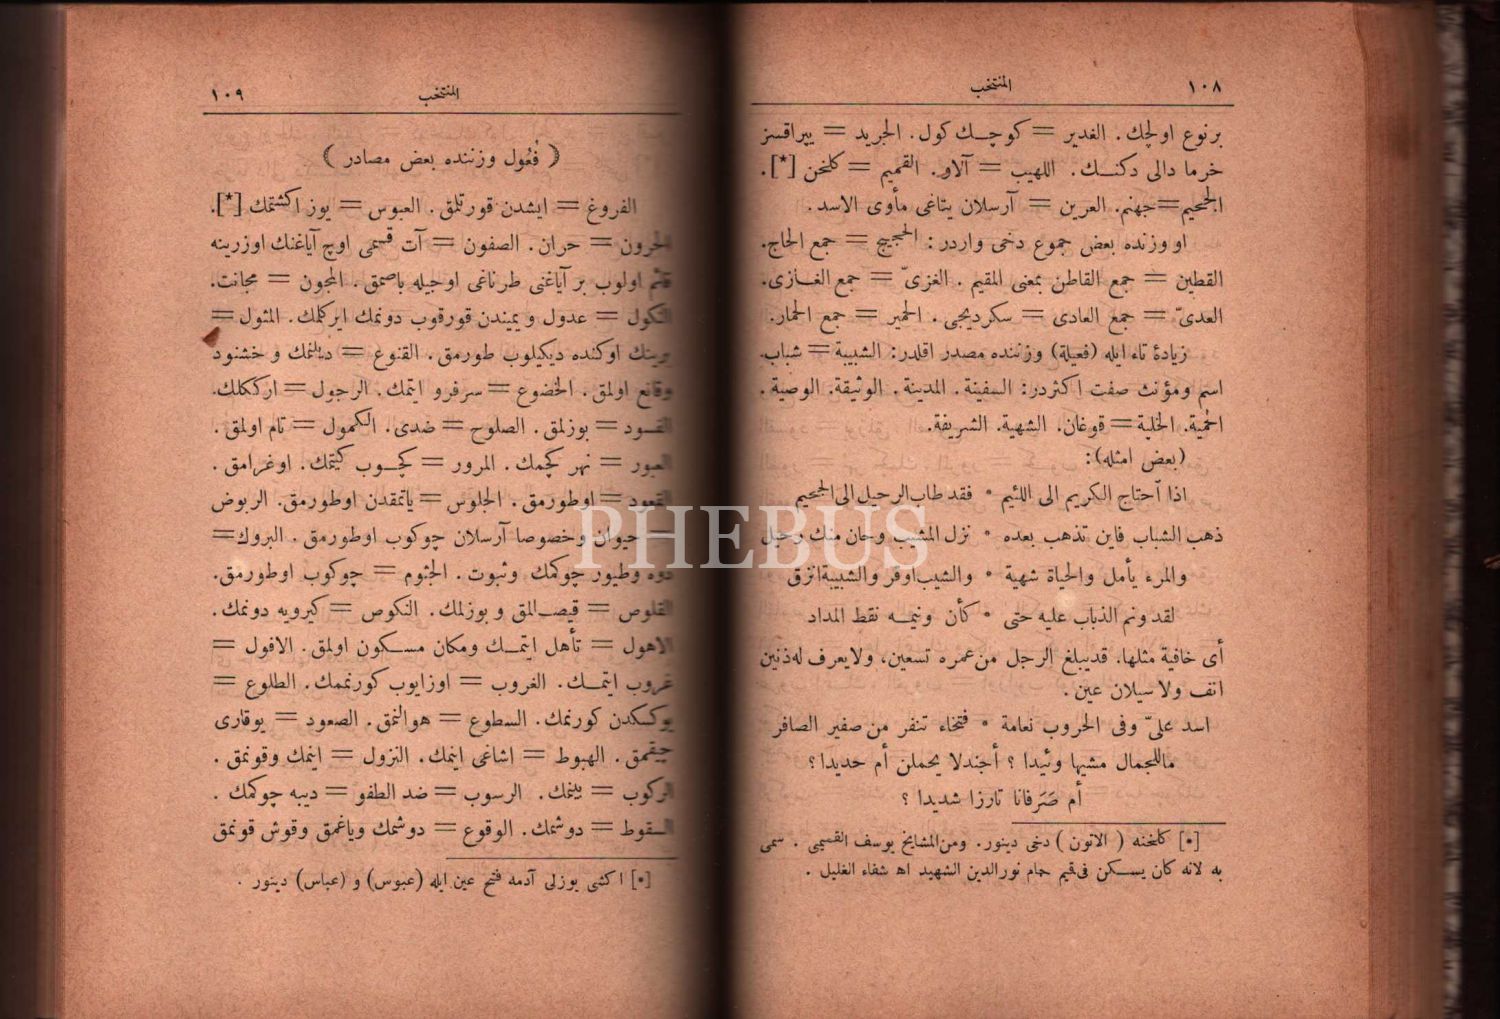 ١٠٨ المنتخب
برنوع اولچك. الغدير = كوچك كول. الجريد = يپراقسز
خرما دالى دكنك. اللهيب = آلاو. القميم = كلخن [*].
الجحيم = جهنم. العرين = آرسلان يتاغى مأوى الاسد.
او وزنده بعض جموع دخى واردر: الحجيج = جمع الحاج.
القطين = جمع القاطن بمعنى المقيم. الغزىّ = جمع الغازى.
العدىّ = جمع العادى = سكرديجى. الحمير = جمع الحمار.
زيادۀ تاء ايله (فعيلة) وزننده مصدر اقلدر: الشبيبة = شباب.
اسم ومؤنث صفت اكثردر: السفينة. المدينة. الوثيقة. الوصية.
الحمية. الخلية = قوغان. الشهية. الشريفة.
(بعض امثله):
اذا احتاج الكريم الى اللئيم * فقد طاب الرحيل الى الجحيم
ذهب الشباب فاين تذهب بعده * نزل المشيب وحان منك رحيل
والمرء يأمل والحياة شهية * والشيب اوقر والشبيبة انزق
لقد ونم الذباب عليه حتى * كأن ونيمه نقط المداد
أى خافية مثلها. قديبلغ الرجل من عمره تسعين، ولايعرف له ذنين
انف ولا سيلان عين.
اسد علىّ وفى الحروب نعامة * فتخاء تنفر من صفير الصافر
ماللجمال مشيها وئيدا؟ أجندلا يحملن أم حديدا؟
أم صَرَفانا تارزا شديدا؟
[*] كلخنه (الاتون) دخى دينور. ومن المشايخ يوسف القميمى. سمى
به لانه كان يسكن فى قيم حمام نورالدين الشهيد اه شفاء الغليل.
المنتخب ١٠٩
(فُعُول وزننده بعض مصادر)
الفروغ = ايشدن قورتلمق. العبوس = يوز اكشتمك [*].
الحرون = حران. الصفون = آت قسمى اوچ آياغنك اوزرينه
قائم اولوب بر آياغنى طرناغى اوجيله باصمق. المجون = مجانت.
النكول = عدول و يميندن قورقوب دونمك ايركلمك. المثول =
برينك اوكنده ديكيلوب طورمق. القنوع = ديلنمك و خشنود
وقانع اولمق. الخضوع = سرفرو ايتمك. الرجول = ارككلك.
الفسود = بوزلمق. الصلوح = ضدى. الكمول = تام اولمق.
العبور = نهر كچمك. المرور = كچوب كيتمك. اوغرامق.
القعود = اوطورمق. الجلوس = ياتمقدن اوطورمق. الربوض
= حيوان وخصوصا آرسلان چوكوب اوطورمق. البروك =
دوه وطيور چوكمك وثبوت. الجثوم = چوكوب اوطورمق.
القلوص = قيصالمق و بوزلمك. النكوص = كيرويه دونمك.
الاهول = تأهل ايتمك ومكان مسكون اولمق. الافول =
غروب ايتمك. الغروب = اوزايوب كورنممك. الطلوع =
يوكسكدن كورنمك. السطوع = هوالنمق. الصعود = يوقارى
چيقمق. الهبوط = اشاغى اينمك. النزول = اينمك وقونمق.
الركوب = بينمك. الرسوب = ضد الطفو = ديبه چوكمك.
السقوط = دوشمك. الوقوع = دوشمك وياغمق وقوش قونمق
[*] اكشى يوزلى آدمه فتح عين ايله (عبوس) و (عباس) دينور.
PHEBUS